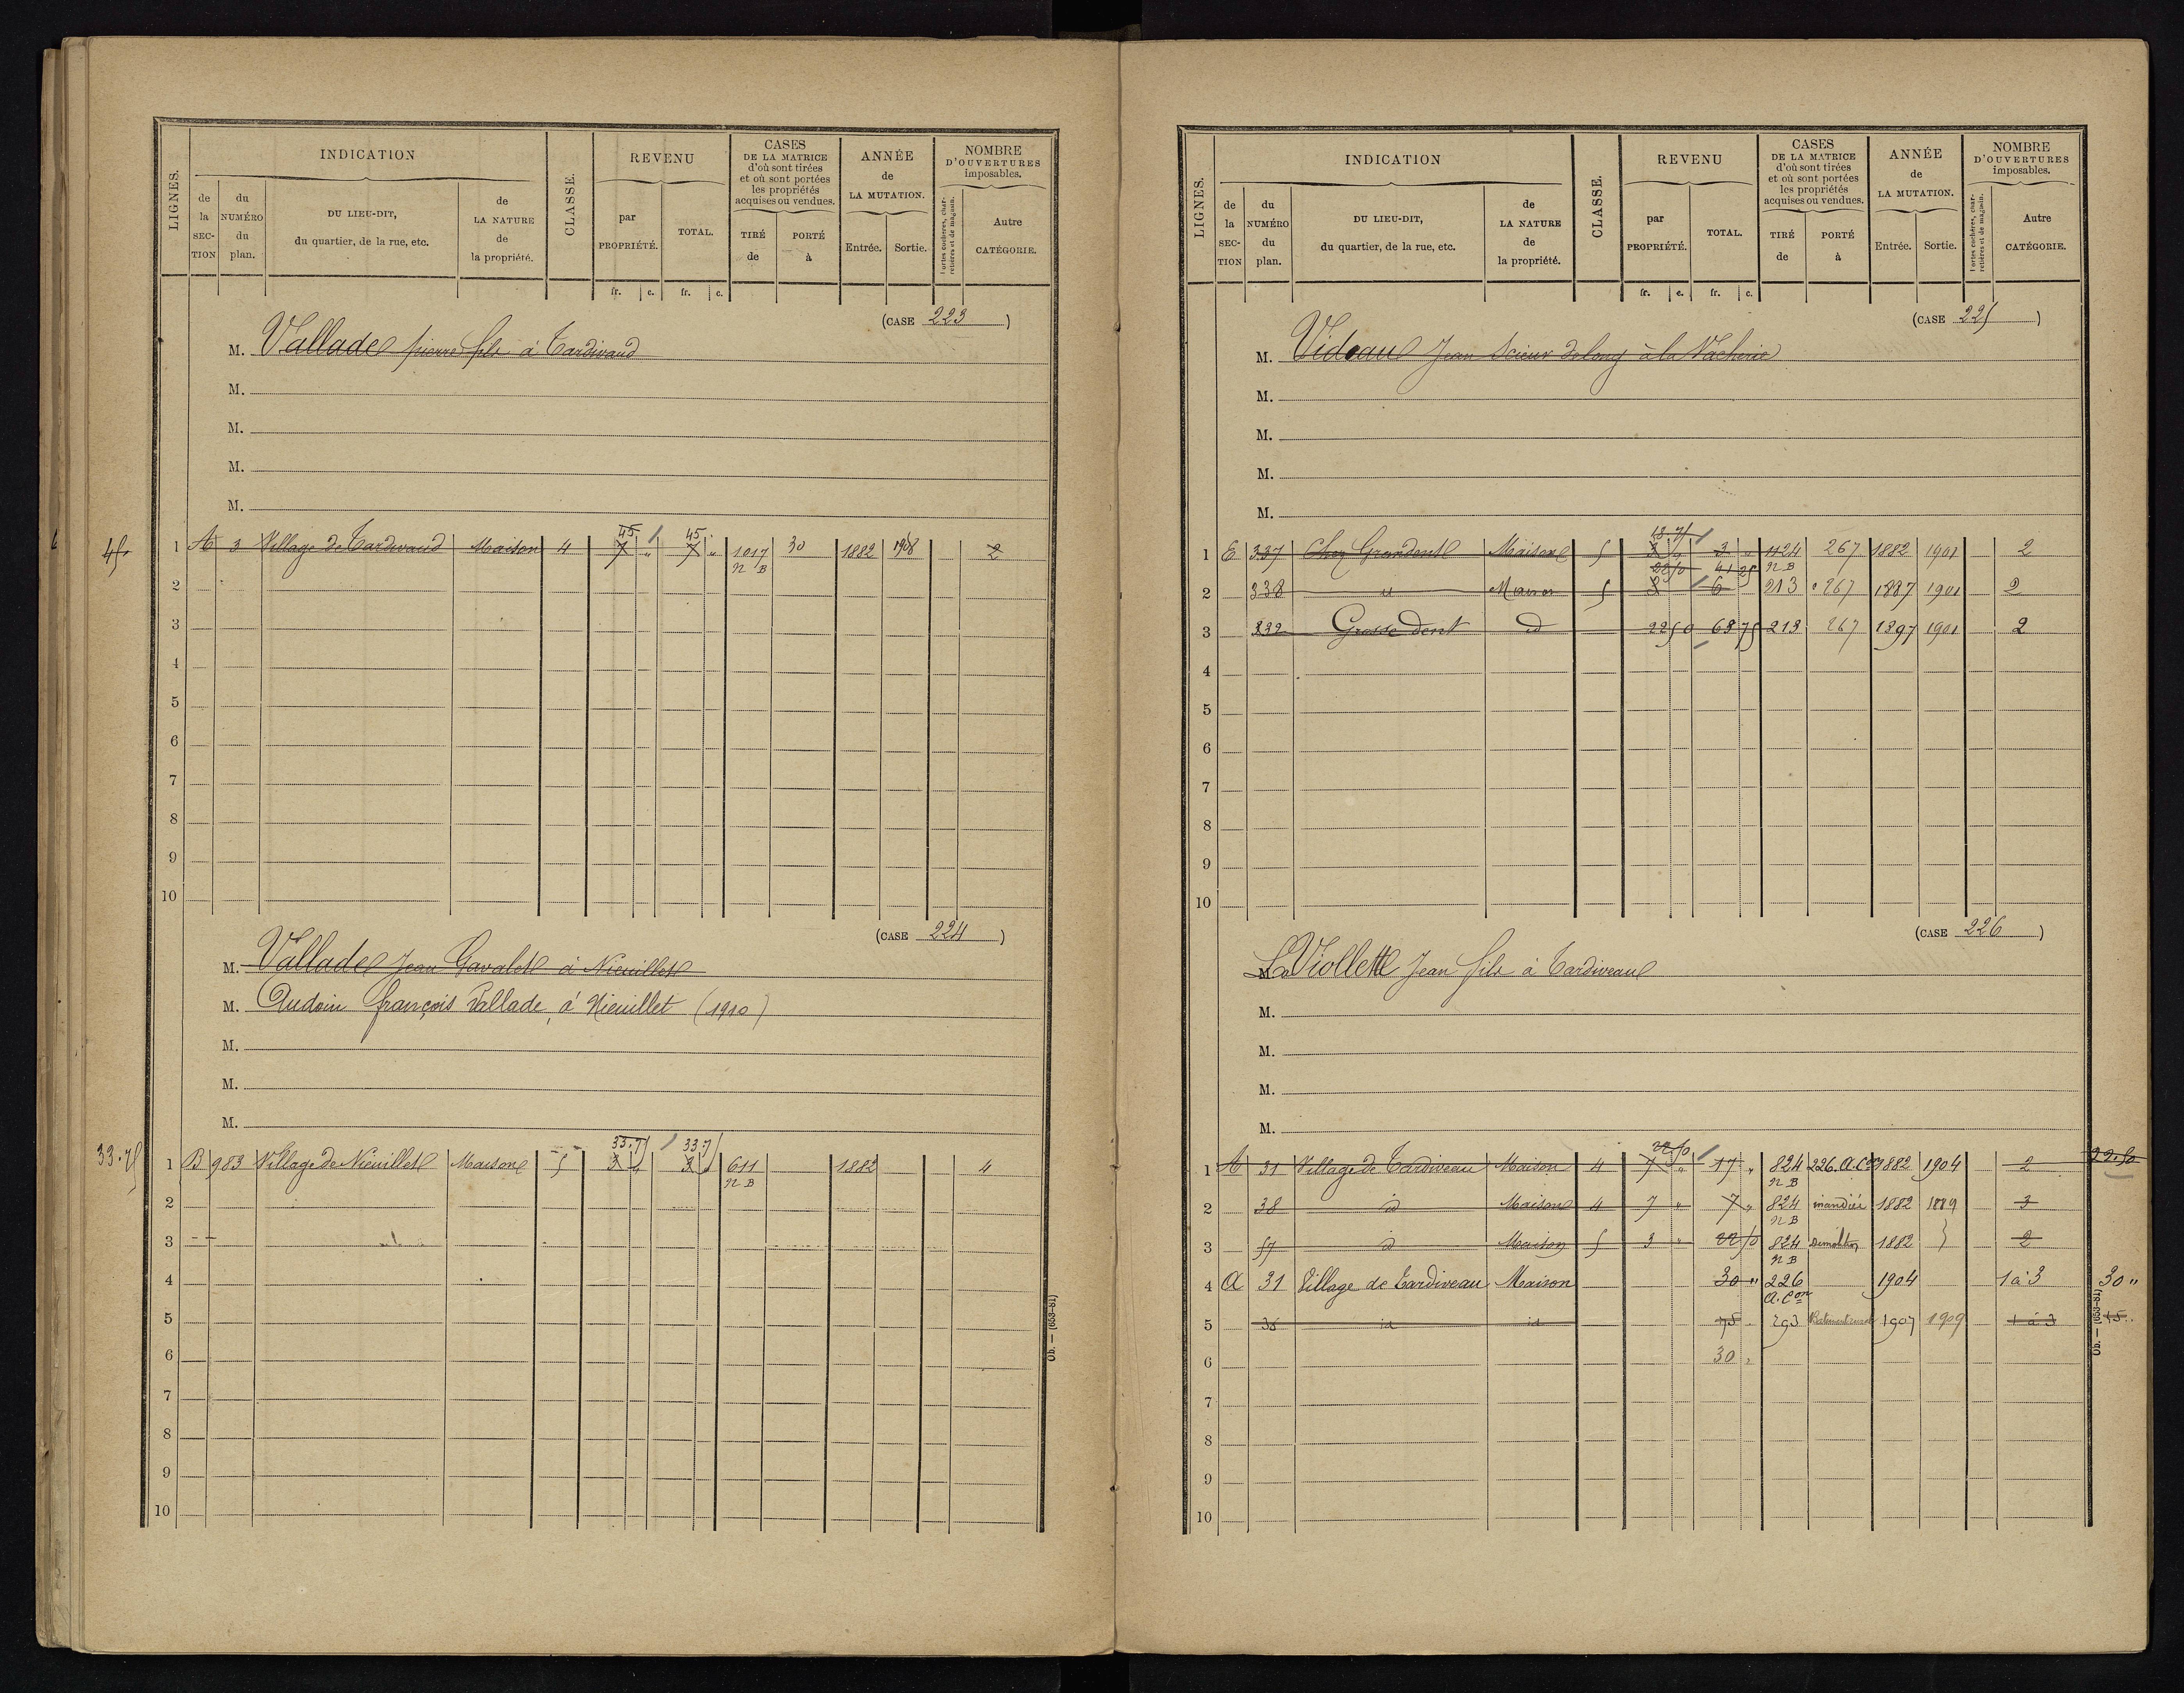 LIGNES. INDICATION CLASSE. REVENU CASES DE LA MATRICE d'où sont tirées et où sont portées les propriétés acquises ou vendues. ANNÉE de LA MUTATION. NOMBRE D'OUVERTURES imposables.
de la SECTION du NUMÉRO du plan. DU LIEU-DIT, du quartier, de la rue, etc. de LA NATURE de la propriété. par PROPRIÉTÉ. TOTAL. TIRÉ de PORTÉ à Entrée. Sortie. Portes cochères, charretières et de magasin. Autre CATÉGORIE.
fr. c. fr. c.
(CASE 223)
M. Vallade pierre fils à Tardivaud
M.
M.
M.
M.
45 45
45 1 A 3 Village de Tardivaud Maison 4 7 " 7 " 1017 30 1882 1908 2
N B
2
3
4
5
6
7
8
9
10
(CASE 224)
M. Vallade Jean Gavalet à Nieuillet
M. Audoin françois Vallade, à Nieuillet (1910)
M.
M.
M.
33.75 33.75
33.75 1 B 983 Village de Nieuillet Maison 5 3 " 3 " 611 1882 4
N B
2
3
4
5
6
7
8
9
10
Ob. — (653-81)
LIGNES. INDICATION CLASSE. REVENU CASES DE LA MATRICE d'où sont tirées et où sont portées les propriétés acquises ou vendues. ANNÉE de LA MUTATION. NOMBRE D'OUVERTURES imposables.
de la SECTION du NUMÉRO du plan. DU LIEU-DIT, du quartier, de la rue, etc. de LA NATURE de la propriété. par PROPRIÉTÉ. TOTAL. TIRÉ de PORTÉ à Entrée. Sortie. Portes cochères, charretières et de magasin. Autre CATÉGORIE.
fr. c. fr. c.
(CASE 225)
M. Videau Jean Scieur de long à la Vacherie
M.
M.
M.
M.
18 75
1 E 337 Chez Grandent Maison 5 3 " 3 " 1124 267 1882 1901 2
22 50 41 25 N B
2 338 id Maison 5 3 6 213 267 1887 1901 2
3 332 Grosse dent id 22 50 63 75 213 267 1897 1901 2
4
5
6
7
8
9
10
(CASE 226)
M. La Viollette Jean fils à Tardiveau
M.
M.
M.
M.
22 50
1 A 31 Village de Tardiveau Maison 4 7 " 17 " 824 226. A.Con 1882 1904 2 22.50
N B
2 38 id Maison 4 7 " 7 " 824 1882 1889 3
N B
3 57 id Maison 5 3 " 22 50 824 Demolition 1882 2
N B
4 A 31 Village de Tardiveau Maison 30 " 226 1904 1 à 3 30 "
A.Con
5 35 id id 75 293 1907 1909 1 à 3 45
6 30
7
8
9
10
Ob. — (653-81)